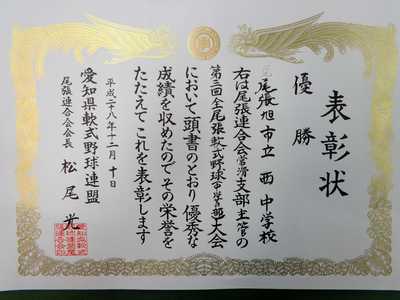 表彰状
優勝
尾張旭市立 西中学校
右は尾張連合会常滑支部主管の
第三回全尾張軟式野球市営大会
において頭書のとおり優秀な
成績を収めたのでその栄誉を
たたえてこれを表彰します
平成二十八年十二月十日
愛知県軟式野球連盟
尾張連合会会長 松尾